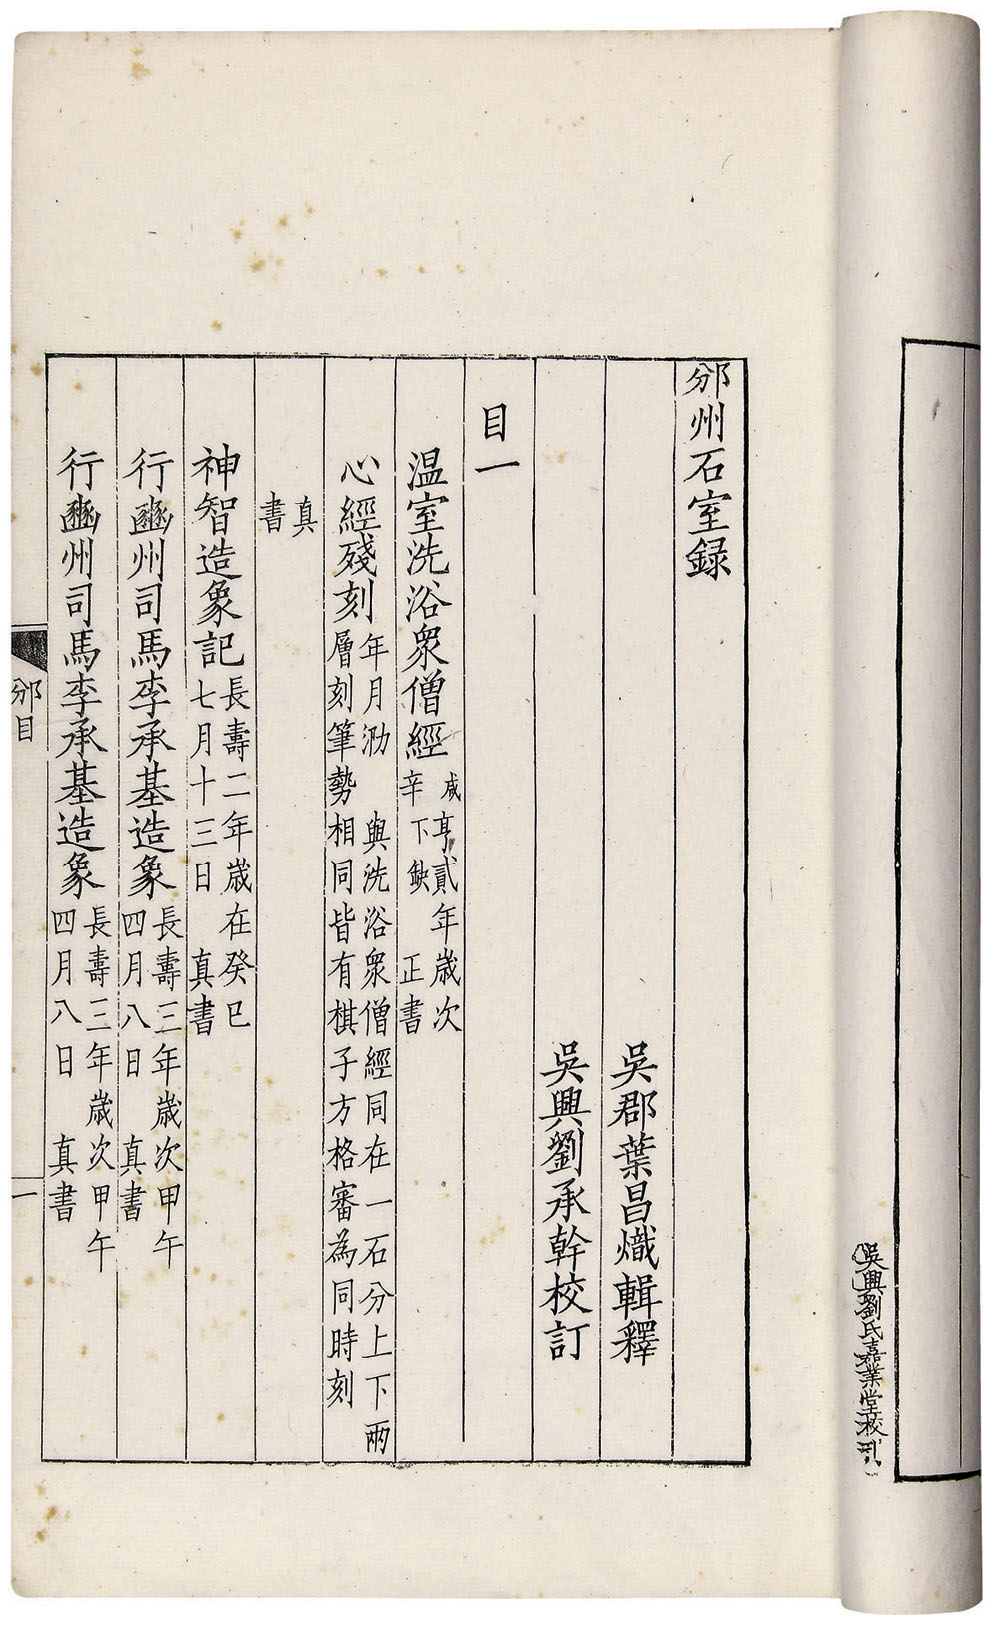 邠州石室録
吳郡葉昌熾輯釋
吳興劉承幹校訂
目一
温室洗浴衆僧經 咸亨貳年歲次
辛下缺 正書
心經殘刻 年月泐 與洗浴衆僧經同在一石分上下兩
層刻筆勢相同皆有棋子方格審為同時刻
真
書
神智造象記 長壽二年歲在癸巳
七月十三日 真書
行豳州司馬李承基造象 長壽三年歲次甲午
四月八日 真書
行豳州司馬李承基造象 長壽三年歲次甲午
四月八日 真書
邠目
一
吳興劉氏嘉業堂校